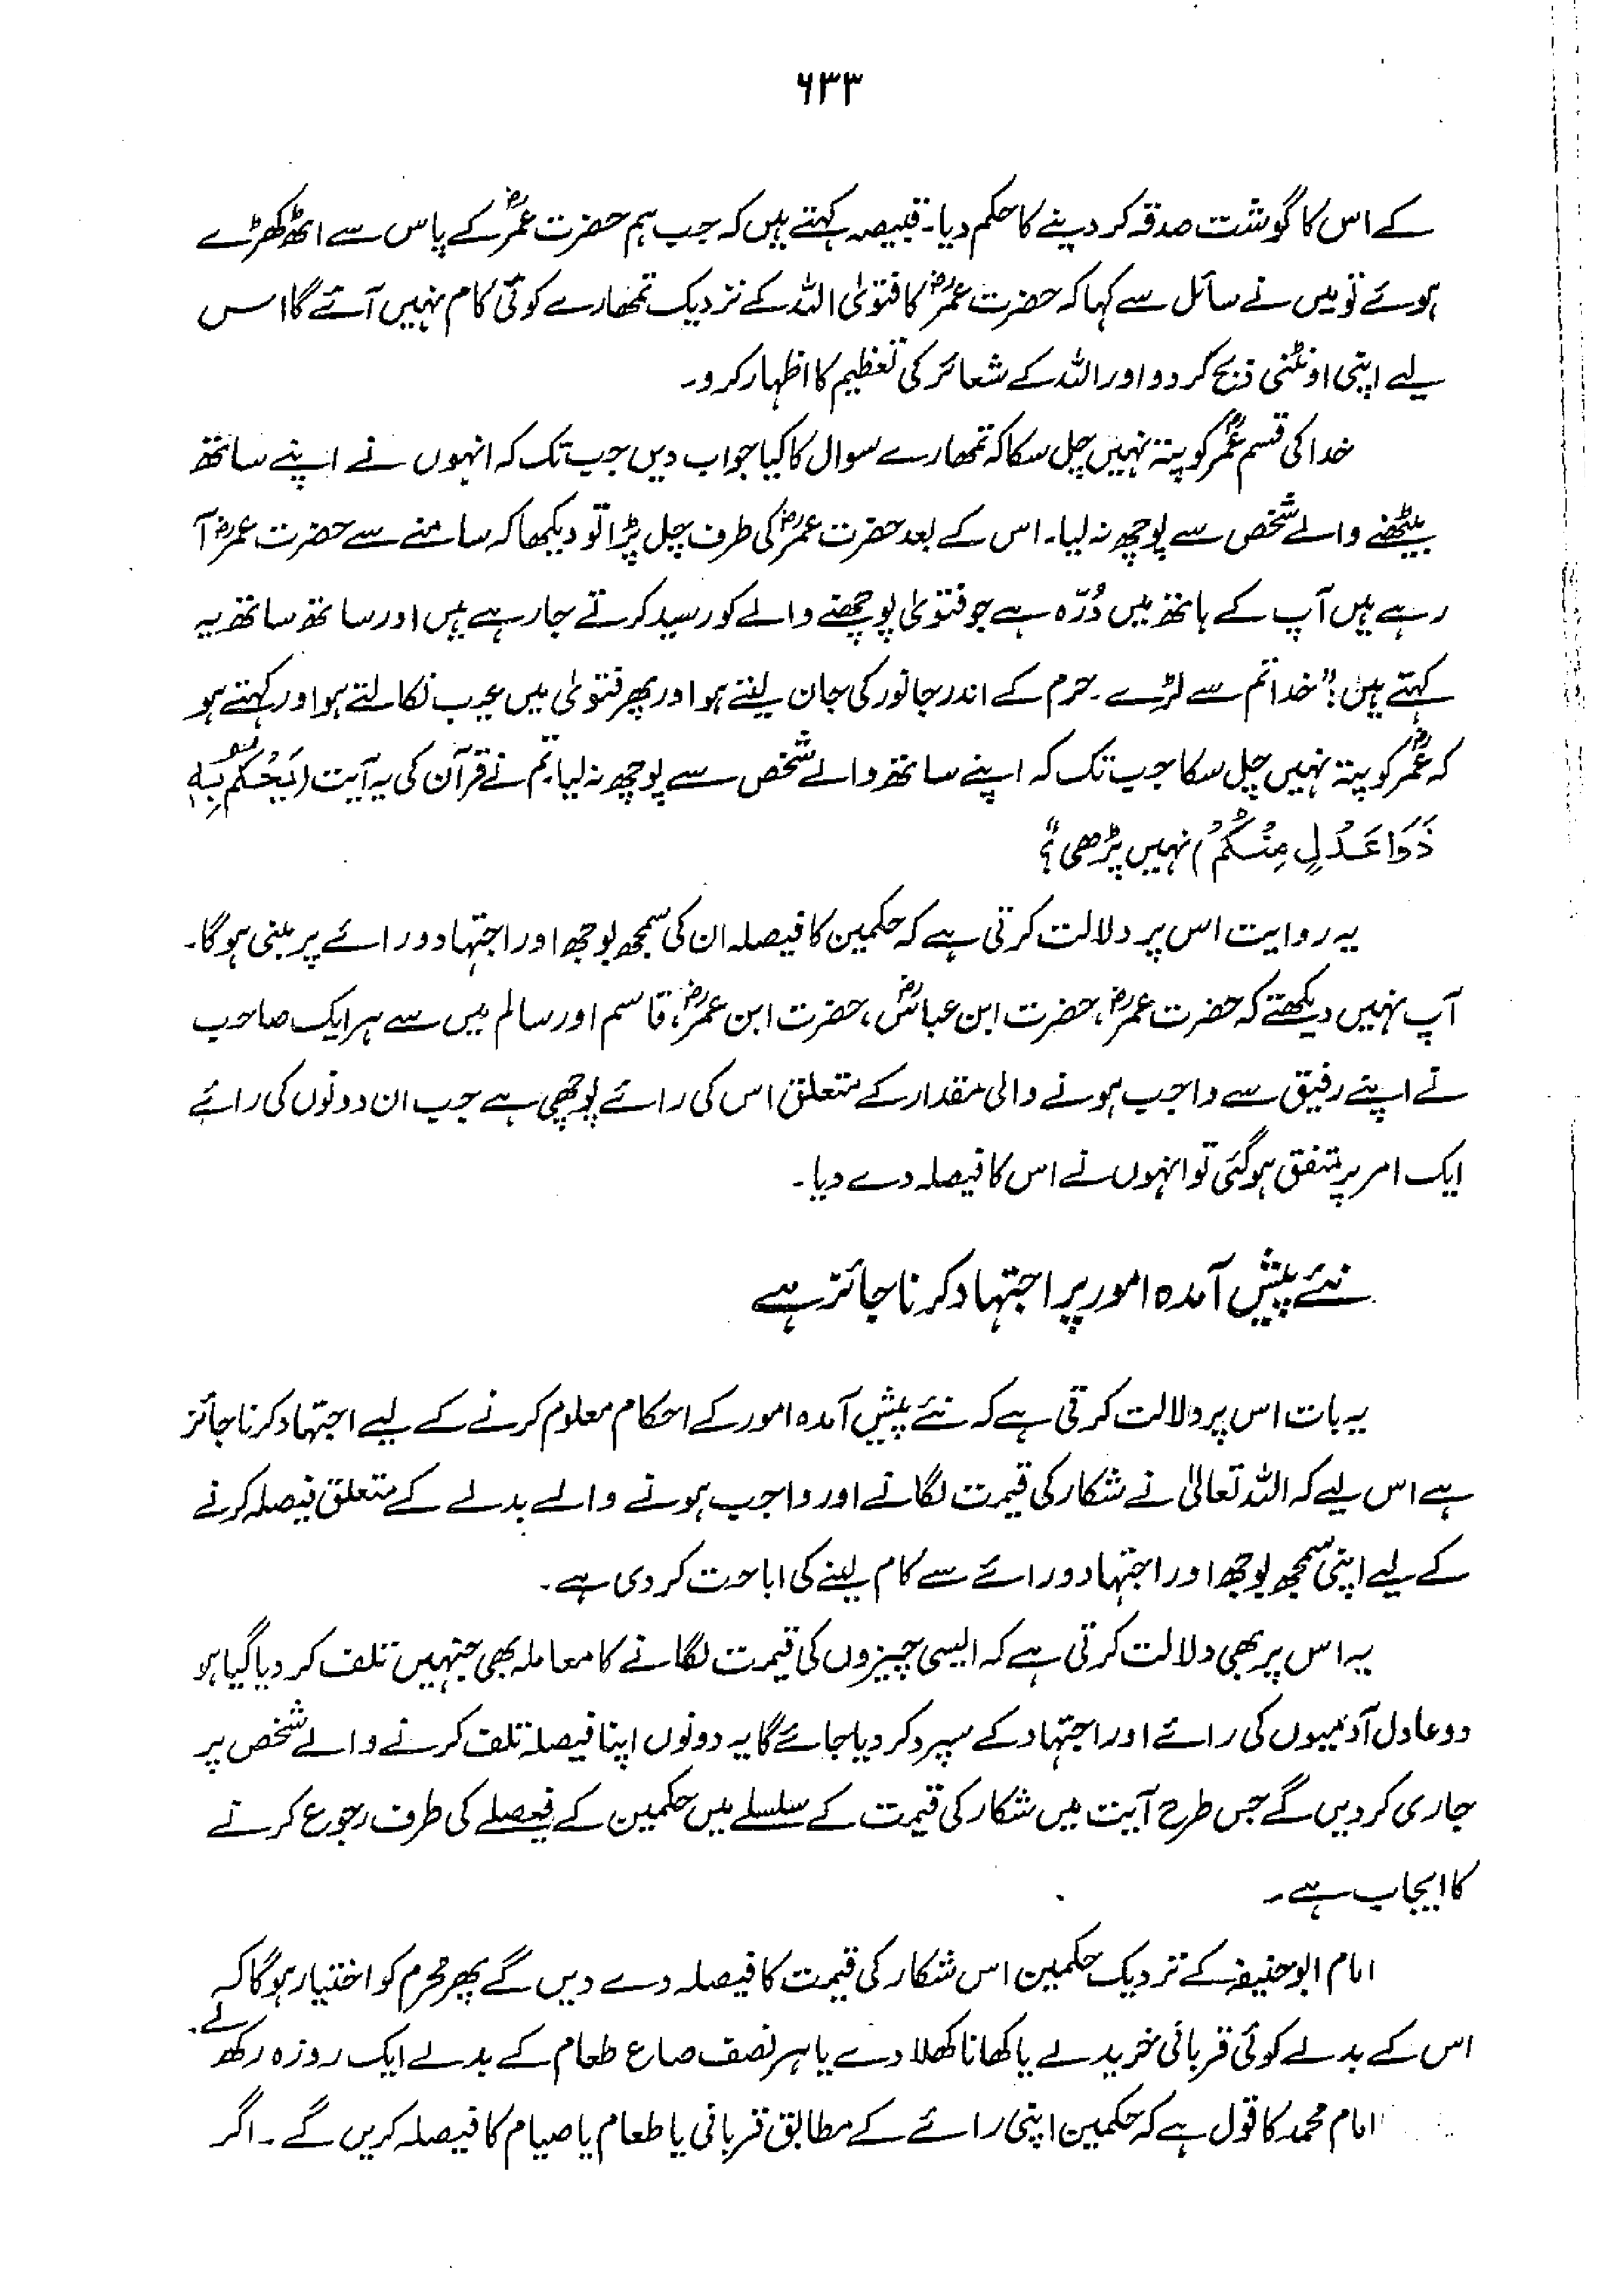 ۶۳۳
کے اس کا گوشت صدقہ کر دینے کا حکم دیا۔ قبیصہ کہتے ہیں کہ جب ہم حضرت عمرؓ کے پاس سے اٹھ کھڑے
ہوئے تو میں نے سائل سے کہا کہ حضرت عمرؓ کا فتویٰ اللہ کے نزدیک تمھارے کوئی کام نہیں آئے گا اس
لیے اپنی اونٹنی ذبح کر دو اور اللہ کے شعائر کی تعظیم کا اظہار کرو۔
خدا کی قسم عمرؓ کو پتہ نہیں چل سکا کہ تمھارے سوال کا کیا جواب دیں جب تک کہ انہوں نے اپنے ساتھ
بیٹھنے والے شخص سے پوچھ نہ لیا۔ اس کے بعد حضرت عمرؓ کی طرف چل پڑا تو دیکھا کہ سامنے سے حضرت عمرؓ آ
رہے ہیں آپ کے ہاتھ میں دُرّہ ہے جو فتویٰ پوچھنے والے کو رسید کرتے جا رہے ہیں اور ساتھ ساتھ یہ
کہتے ہیں: "خدا تم سے لڑے۔ حرم کے اندر جانور کی جان لیتے ہو اور پھر فتویٰ میں عیب نکالتے ہو اور کہتے ہو
کہ عمرؓ کو پتہ نہیں چل سکا جب تک کہ اپنے ساتھ والے شخص سے پوچھ نہ لیا۔ تم نے قرآن کی یہ آیت (یَحْکُمُ بِہٖ
ذَوَا عَدْلٍ مِنْکُمْ) نہیں پڑھی؟"
یہ روایت اس پر دلالت کرتی ہے کہ حکمین کا فیصلہ ان کی سمجھ بوجھ اور اجتہاد و رائے پر مبنی ہو گا۔
آپ نہیں دیکھتے کہ حضرت عمرؓ، حضرت ابن عباسؓ، حضرت ابن عمرؓ، قاسم اور سالم میں سے ہر ایک صاحب
نے اپنے رفیق سے واجب ہونے والی مقدار کے متعلق اس کی رائے پوچھی ہے جب ان دونوں کی رائے
ایک امر پر متفق ہو گئی تو انہوں نے اس کا فیصلہ دے دیا۔
نئے پیش آمدہ امور پر اجتہاد کرنا جائز ہے
یہ بات اس پر دلالت کرتی ہے کہ نئے پیش آمدہ امور کے احکام معلوم کرنے کے لیے اجتہاد کرنا جائز
ہے اس لیے کہ اللہ تعالیٰ نے شکار کی قیمت لگانے اور واجب ہونے والے بدلے کے متعلق فیصلہ کرنے
کے لیے اپنی سمجھ بوجھ اور اجتہاد و رائے سے کام لینے کی اباحت کر دی ہے۔
یہ اس پر بھی دلالت کرتی ہے کہ ایسی چیزوں کی قیمت لگانے کا معاملہ بھی جنہیں تلف کر دیا گیا ہو
دو عادل آدمیوں کی رائے اور اجتہاد کے سپرد کر دیا جائے گا یہ دونوں اپنا فیصلہ تلف کرنے والے شخص پر
جاری کر دیں گے جس طرح آیت میں شکار کی قیمت کے سلسلے میں حکمین کے فیصلے کی طرف رجوع کرنے
کا ایجاب ہے۔
امام ابو حنیفہ کے نزدیک حکمین اس شکار کی قیمت کا فیصلہ دے دیں گے پھر محرم کو اختیار ہو گا کہ
اس کے بدلے کوئی قربانی خرید لے یا کھانا کھلا دے یا ہر نصف صاع طعام کے بدلے ایک روزہ رکھ لے۔
امام محمد کا قول ہے کہ حکمین اپنی رائے کے مطابق قربانی یا طعام یا صیام کا فیصلہ کریں گے۔ اگر